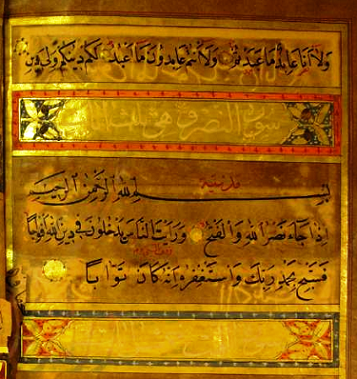 وَلَا أَنَا عَابِدٌ مَا عَبَدْتُمْ وَلَا أَنْتُمْ عَابِدُونَ مَا أَعْبُدُ لَكُمْ دِينُكُمْ وَلِيَ دِينِ
سورة النصر هي ثلث
بسم الله الرحمن الرحيم
إِذَا جَاءَ نَصْرُ اللهِ وَالْفَتْحُ وَرَأَيْتَ النَّاسَ يَدْخُلُونَ فِي دِينِ اللهِ أَفْوَاجًا
فَسَبِّحْ بِحَمْدِ رَبِّكَ وَاسْتَغْفِرْهُ إِنَّهُ كَانَ تَوَّابًا